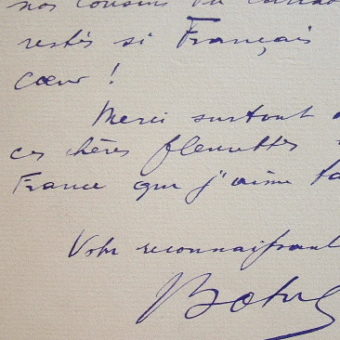 nos cousins du Canad
restés si Français
cœur !
Merci surtout
ces chères fleurettes
France que j'aime ta
Votre reconnaissant
Botrel